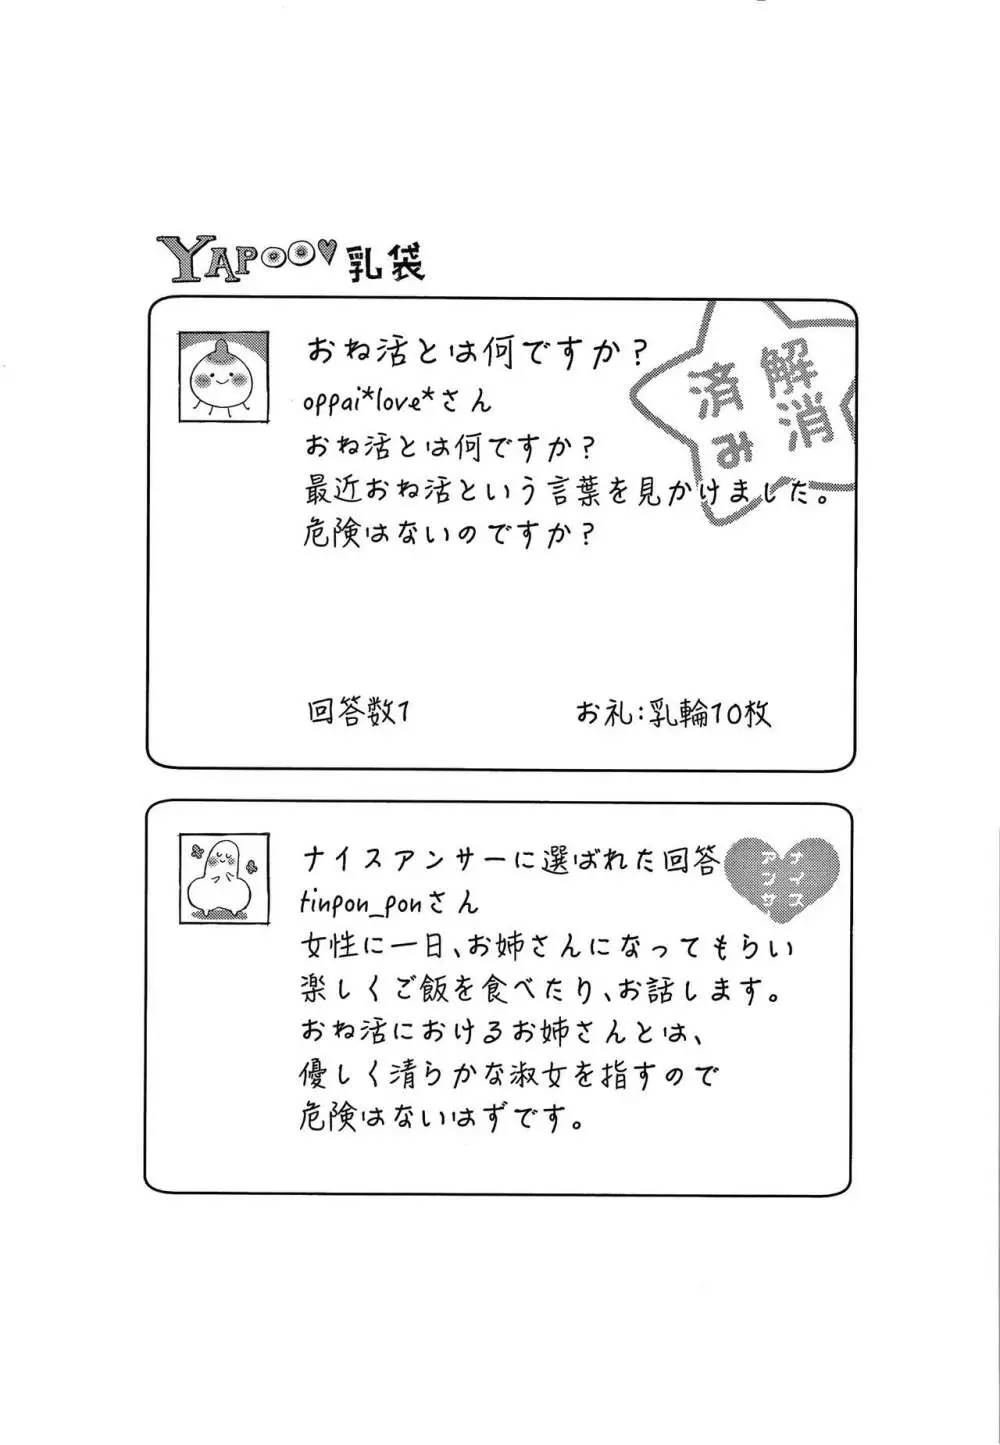 YAPOO♥乳袋
おね活とは何ですか?
解消
済み
oppai*love*さん
おね活とは何ですか?
最近おね活という言葉を見かけました。
危険はないのですか?
回答数1
お礼:乳輪10枚
ナイスアンサーに選ばれた回答
ナイス
アンサー
tinpon_ponさん
女性に一日、お姉さんになってもらい
楽しくご飯を食べたり、お話します。
おね活におけるお姉さんとは、
優しく清らかな淑女を指すので
危険はないはずです。